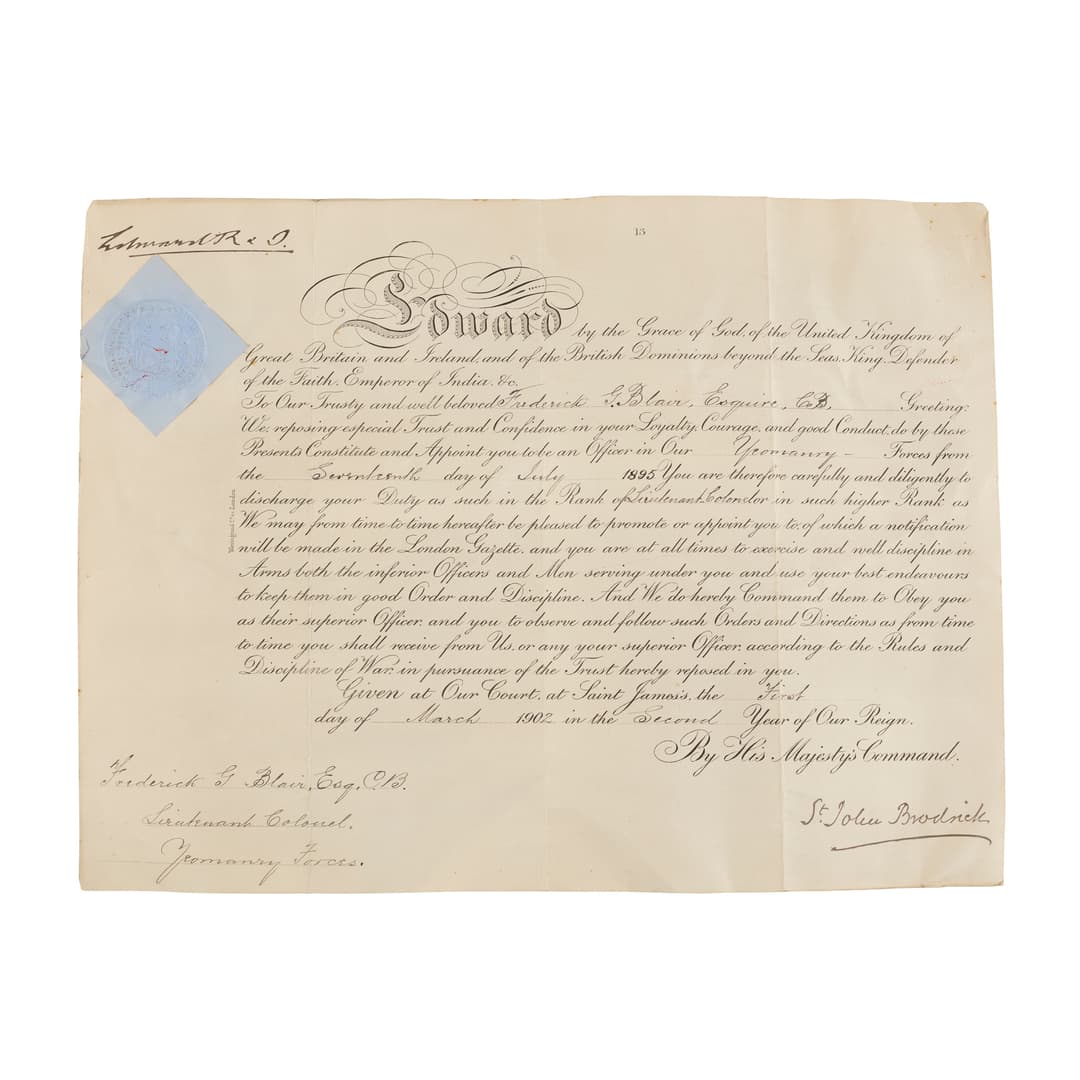 Edward R & I.
13
Edward by the Grace of God, of the United Kingdom of
Great Britain and Ireland, and of the British Dominions beyond the Seas, King, Defender
of the Faith, Emperor of India, &c.
To Our Trusty and well beloved Frederick G. Blair, Esquire, C.B, Greeting:
We, reposing especial Trust and Confidence in your Loyalty, Courage, and good Conduct, do by these
Presents Constitute and Appoint you to be an Officer in Our Yeomanry Forces from
the Seventeenth day of July 1895 You are therefore carefully and diligently to
discharge your Duty as such in the Rank of Lieutenant Colonel or in such higher Rank as
We may from time to time hereafter be pleased to promote or appoint you to, of which a notification
will be made in the London Gazette, and you are at all times to exercise and well discipline in
Arms both the inferior Officers and Men serving under you and use your best endeavours
to keep them in good Order and Discipline. And We do hereby Command them to Obey you
as their superior Officer, and you to observe and follow such Orders and Directions as from time
to time you shall receive from Us, or any your superior Officer, according to the Rules and
Discipline of War, in pursuance of the Trust hereby reposed in you.
Given at Our Court, at Saint James's, the First
day of March 1902 in the Second Year of Our Reign.
By His Majesty's Command.
Frederick G Blair, Esq, C.B.
Lieutenant Colonel.
Yeomanry Forces.
St John Brodrick